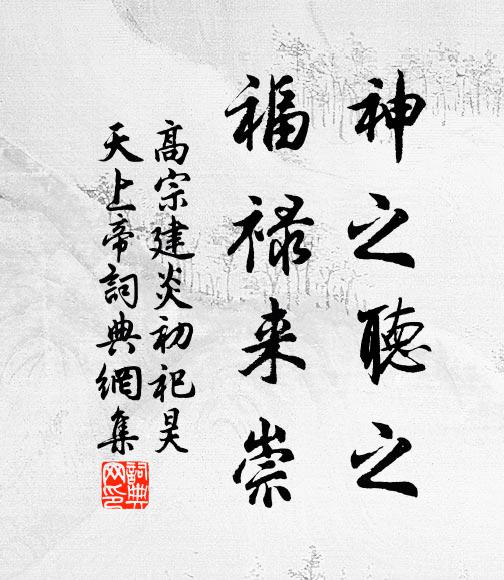 神之聽之
福禄来崇
高宗建炎初祀昊
天上帝詞典網集
詞典
网印